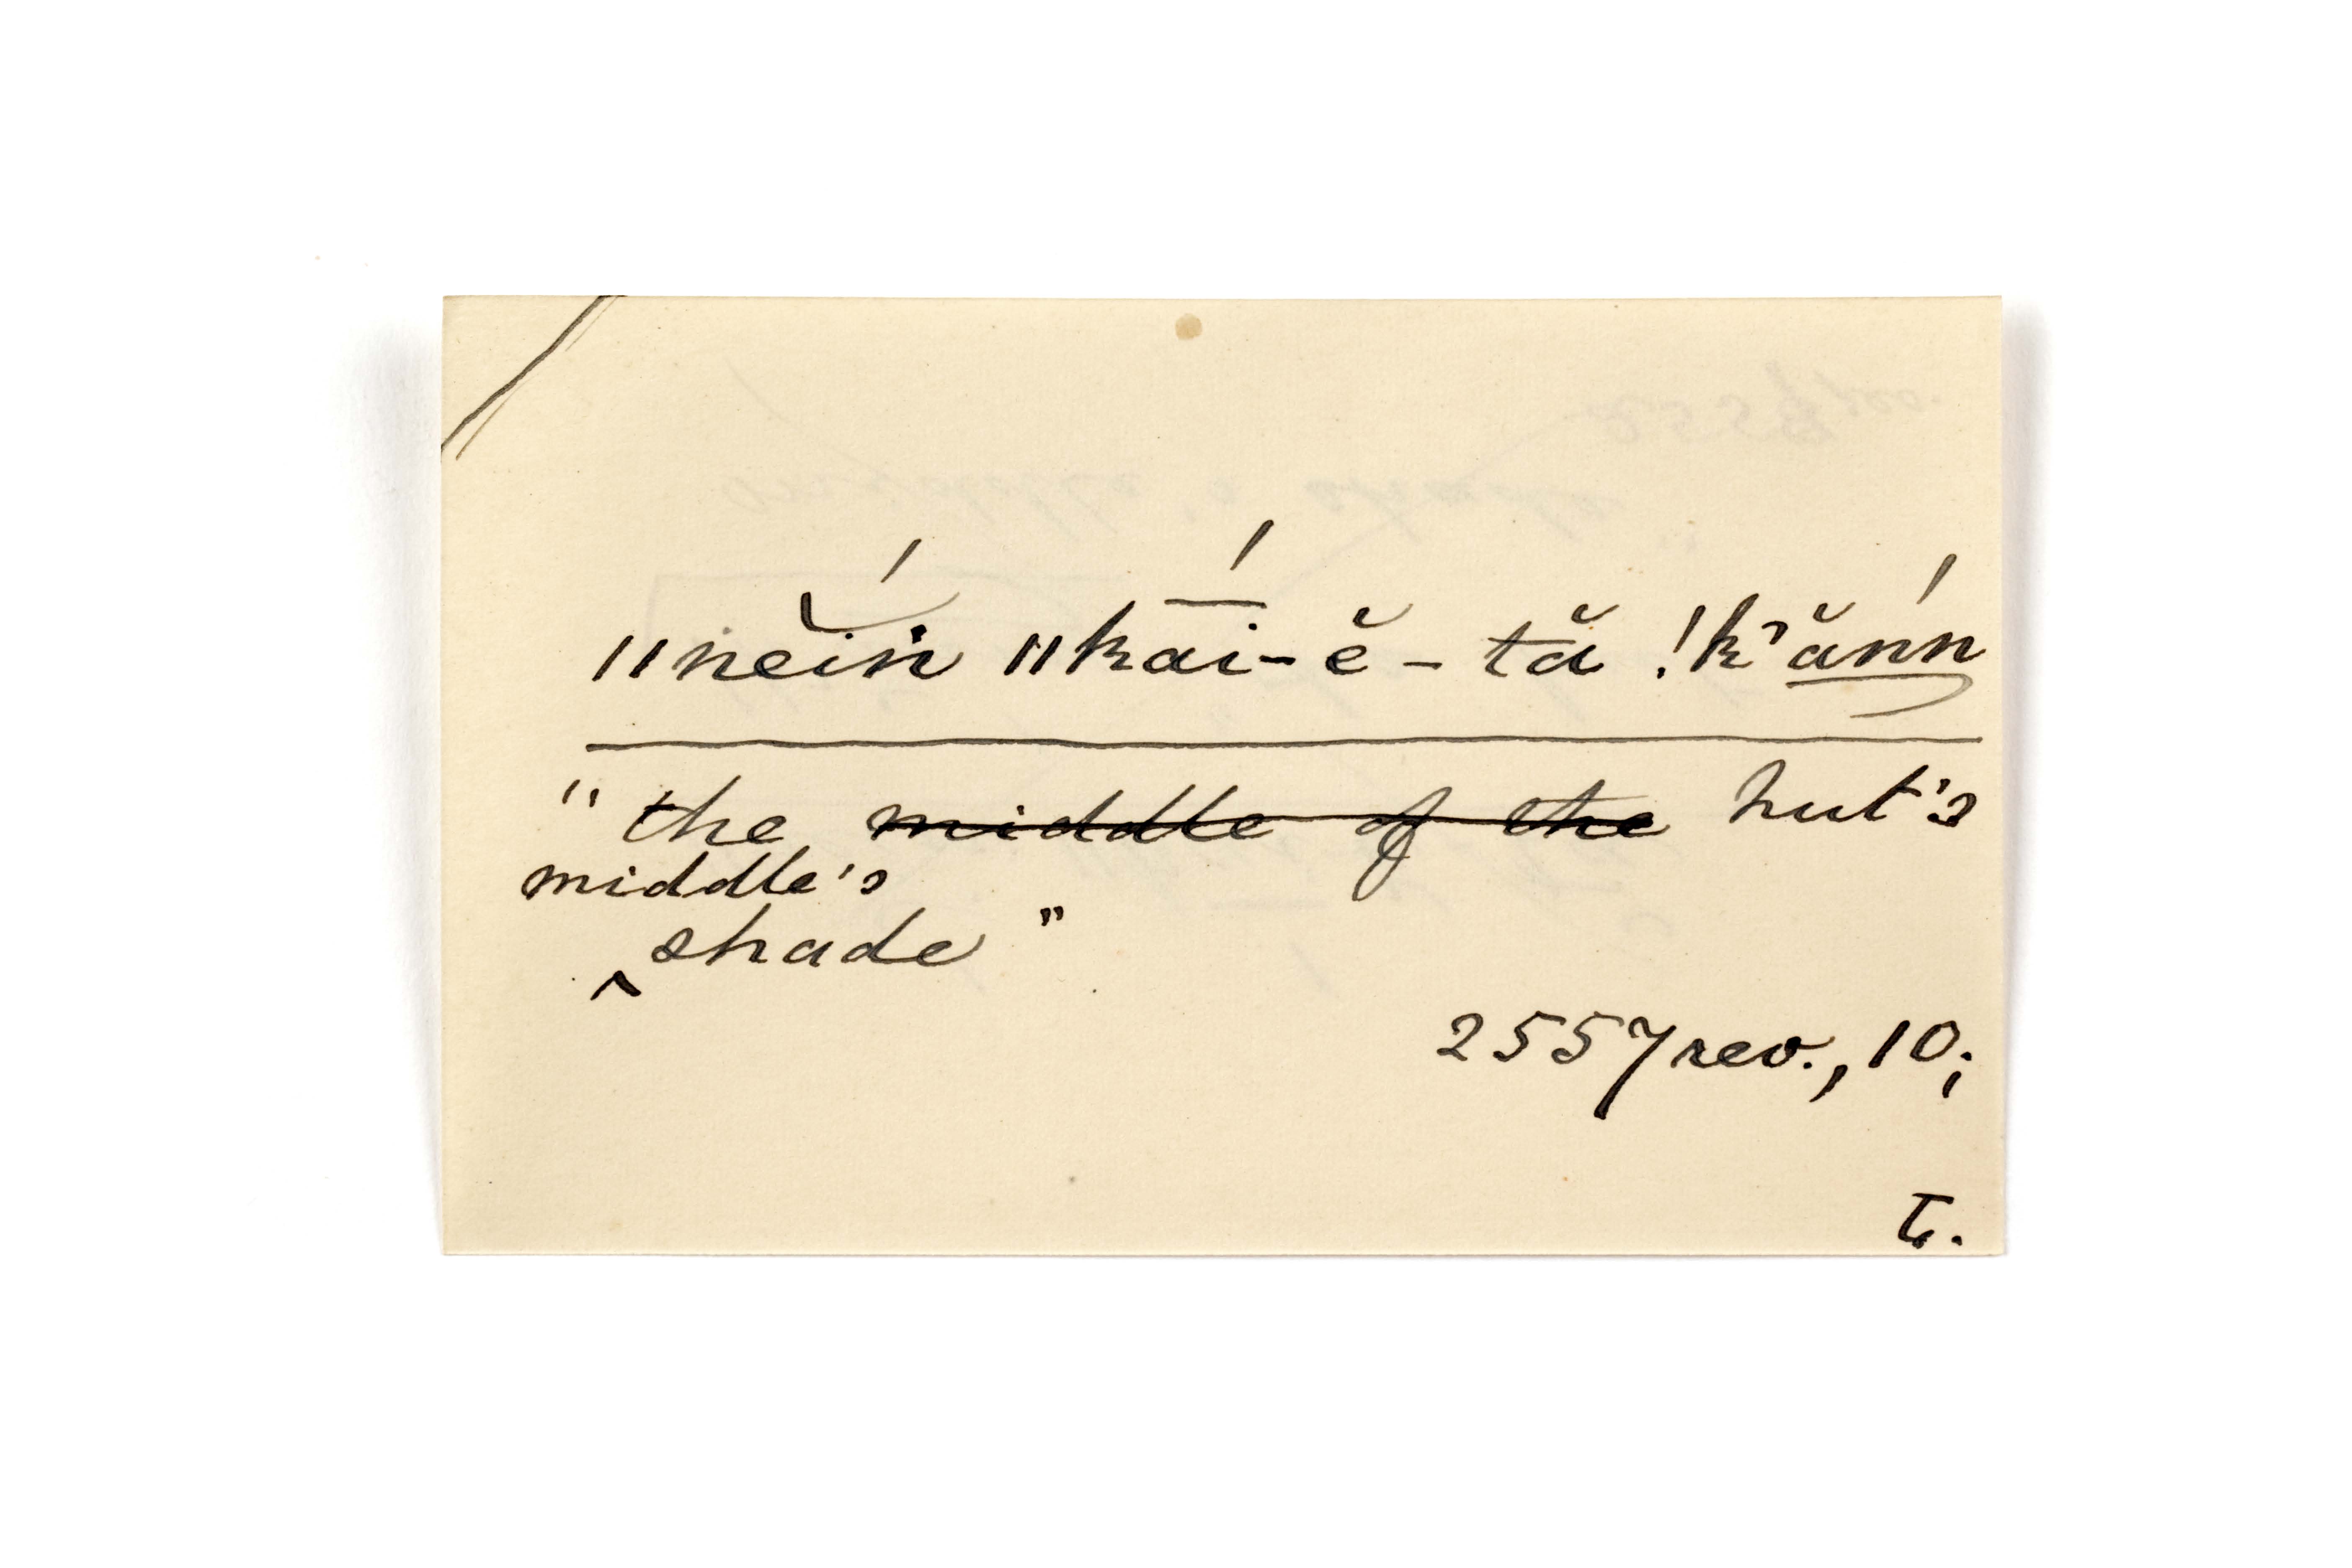 ǁnĕíṅ ǁkā́i-ĕ-tă !kʼăńn
"the ~~middle of the~~ hut's
middle's
‸shade"
2557 rev., 10;
T.